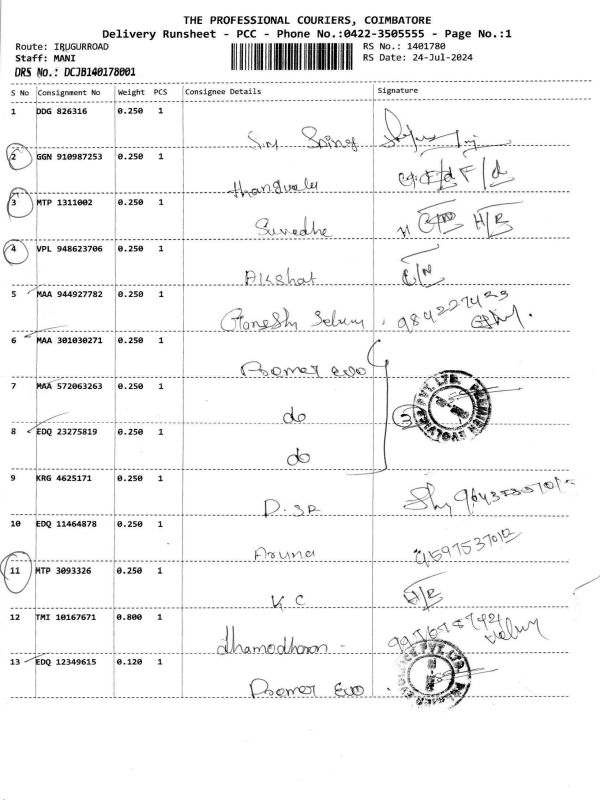 THE PROFESSIONAL COURIERS, COIMBATORE
Delivery Runsheet - PCC - Phone No.:0422-3505555 - Page No.:1
Route: IRUGURROAD RS No.: 1401780
Staff: MANI RS Date: 24-Jul-2024
DRS No.: DCJB140178001
S No Consignment No Weight PCS Consignee Details Signature
1 DDG 826316 0.250 1
2 GGN 910987253 0.250 1
thangvelu
3 MTP 1311002 0.250 1
H/R
4 VPL 948623706 0.250 1
Akshat C/N
5 MAA 944927782 0.250 1
Ganesh Selvam 984227423
6 MAA 301030271 0.250 1
Premer Evo
7 MAA 572063263 0.250 1
do 3
PREMIER EVOLVICS PVT. LTD.
8 EDQ 23275819 0.250 1
do
9 KRG 4625171 0.250 1
D. SR
10 EDQ 11464878 0.250 1
Aruna
11 MTP 3093326 0.250 1
K C H/R
12 TMI 10167671 0.800 1
dhamodharan
13 EDQ 12349615 0.120 1
Premer Evo
PREMIER EVOLVICS PVT. LTD.